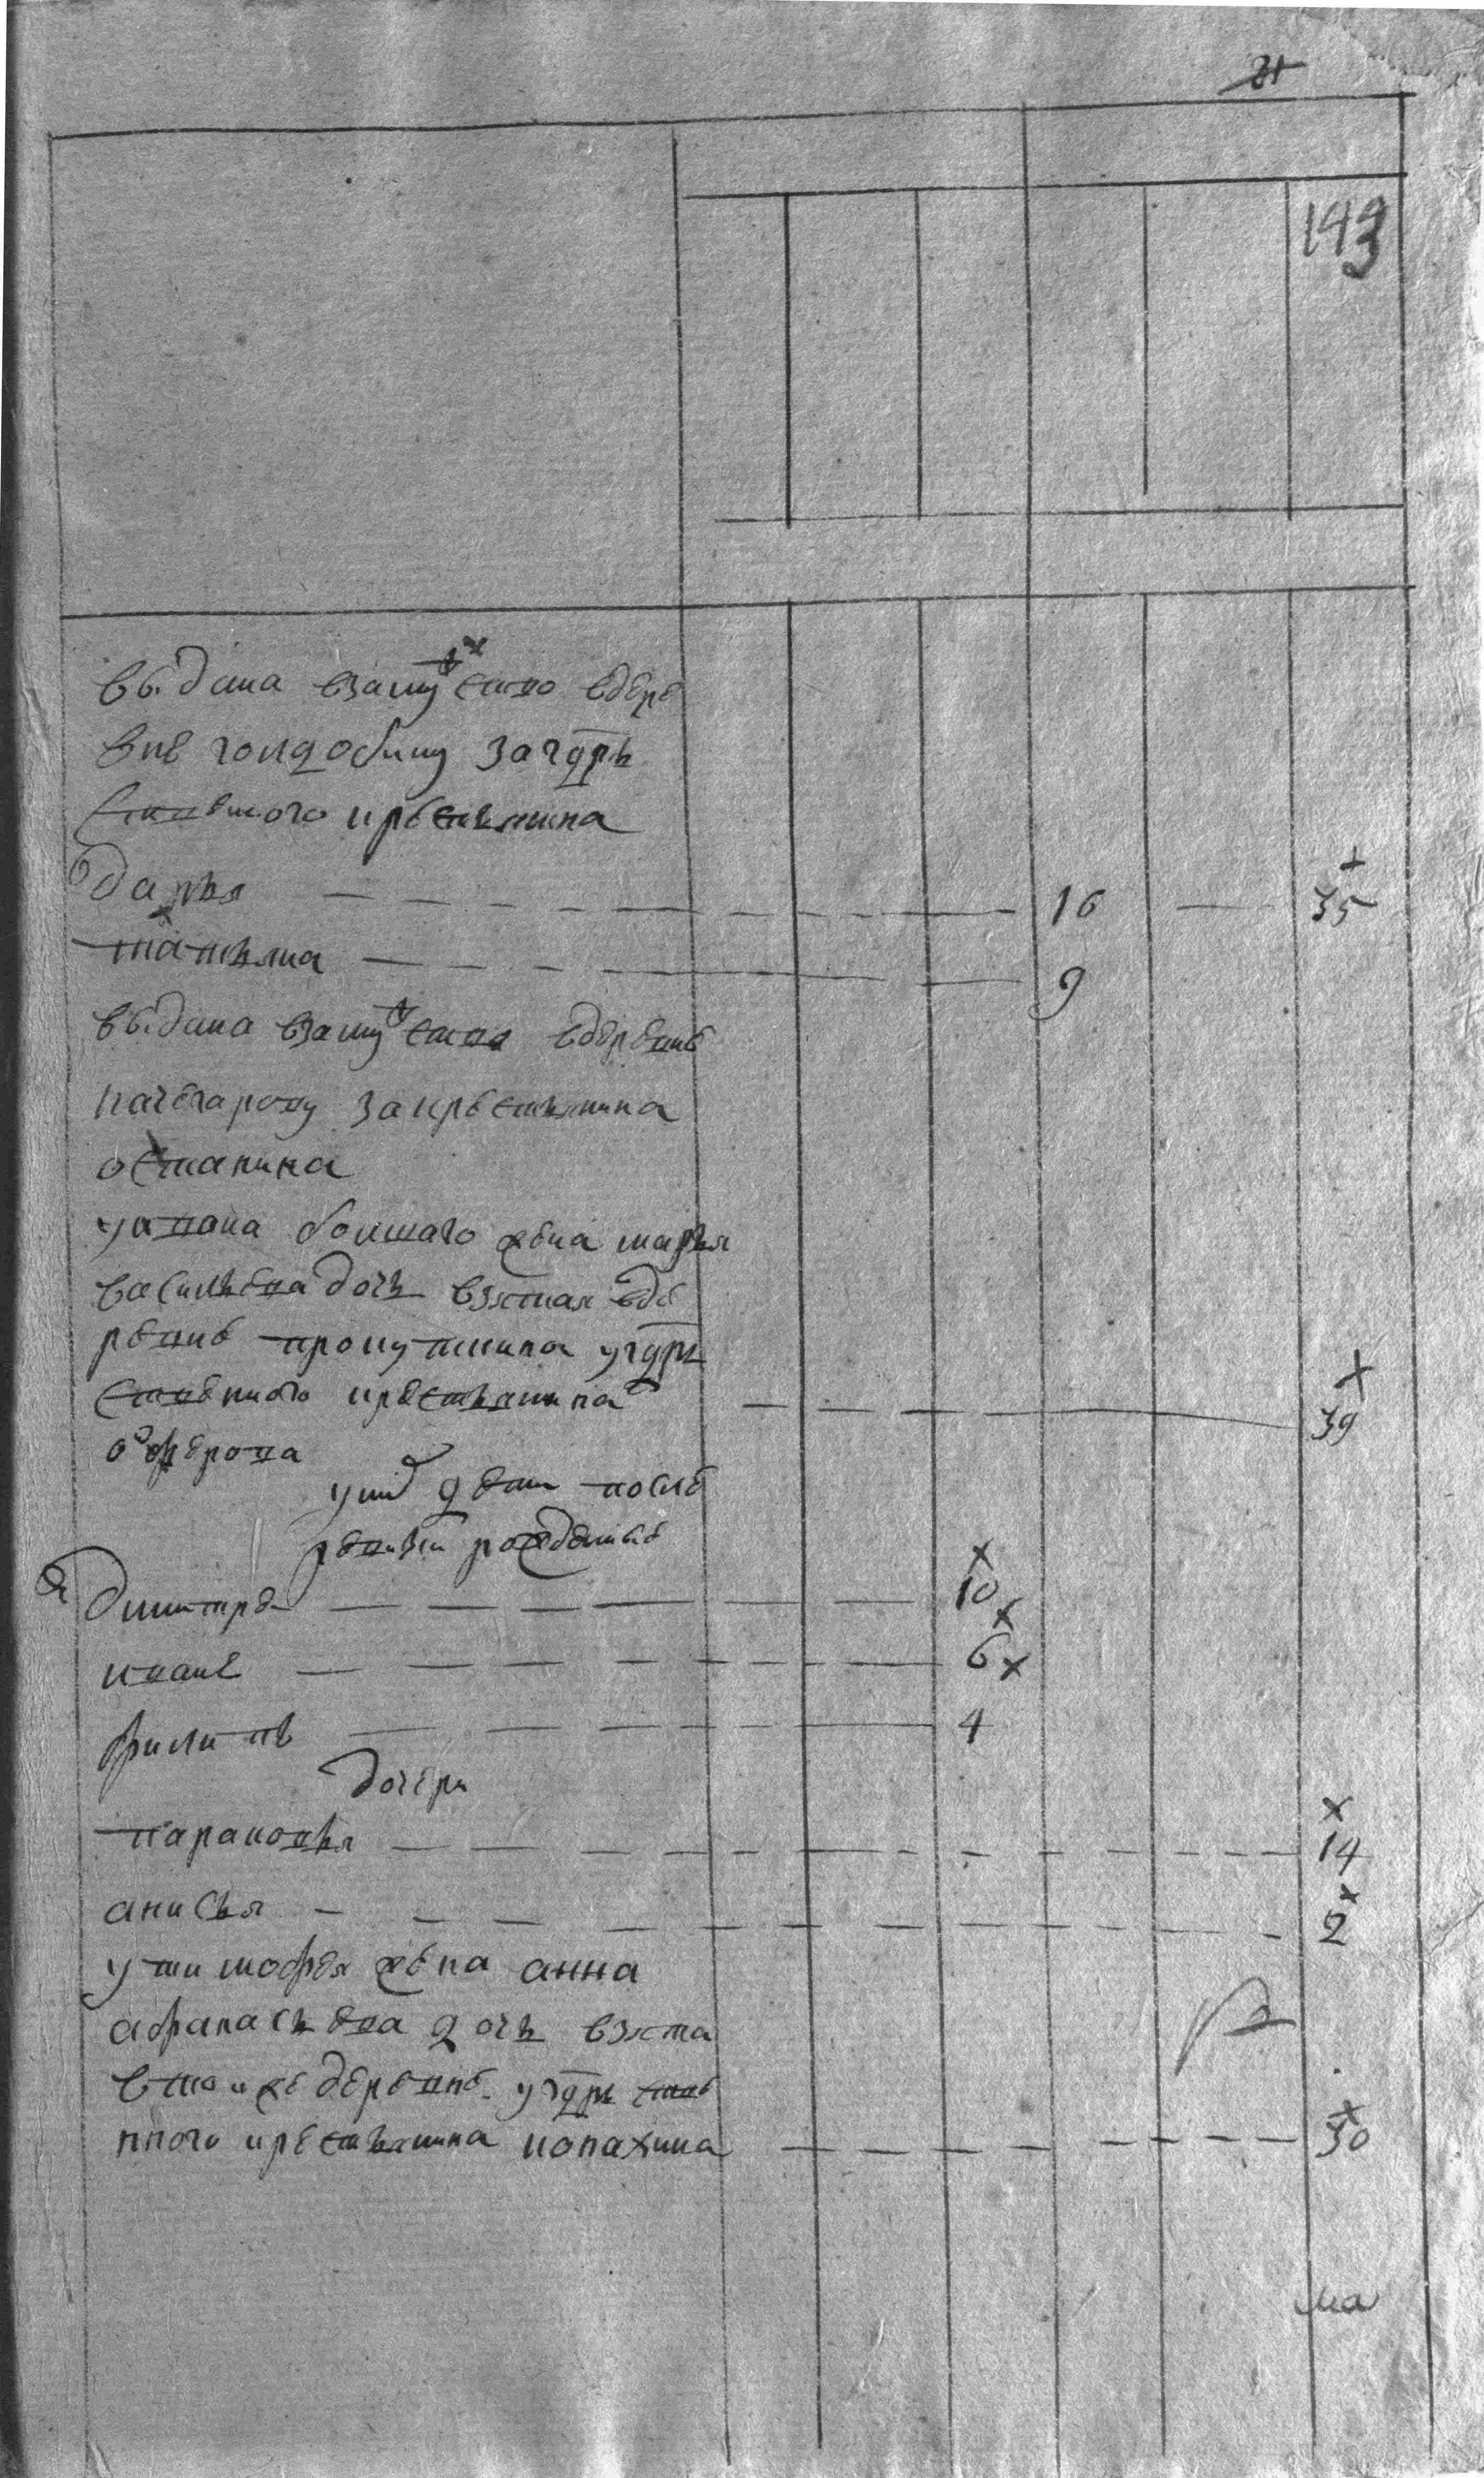 31
143
выдана взамужство вдере
вне голдобину загдрь
ственого крестьянина
дарья 16 35
татьяна 9
выдана взамужство вдеревне
за крестьянина
останина
уивана болшаго жена марья
васильева дочь взятая вде
ревне укгдрь
ственного крестьянина 39
оферова
уних дети после
ревизи рожденные
димитрей 10
иване 6
филипъ 4
дочери
парасковья 14
анисья 2
утимофея жена анна
афанасьева дочь взята
втои же деревне угдрь стве
нного крестьянина копахина 30
ма